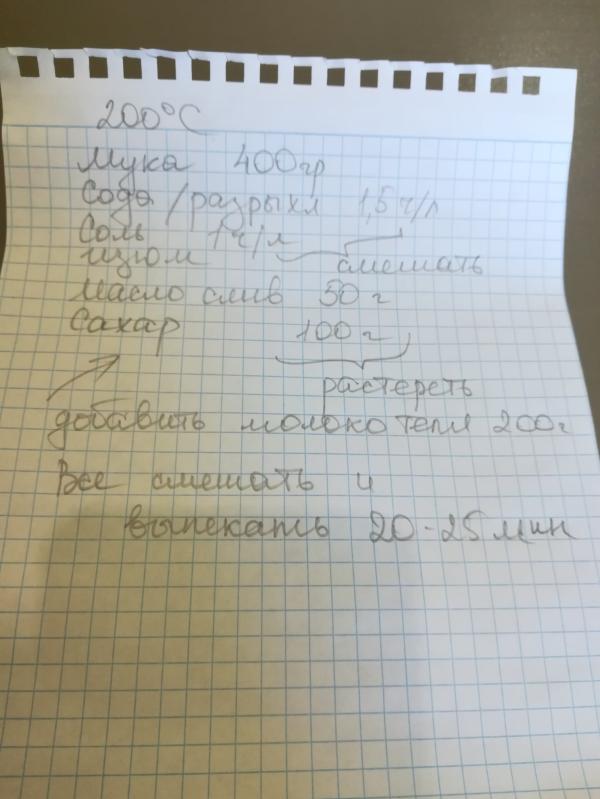 200°C
Мука 400гр
Сода/разрыхл 1,5 ч/л
Соль 1ч/л
изюм смешать
Масло слив 50 г
Сахар 100 г
растереть
добавить молоко тепл 200г
Все смешать и
выпекать 20-25 мин